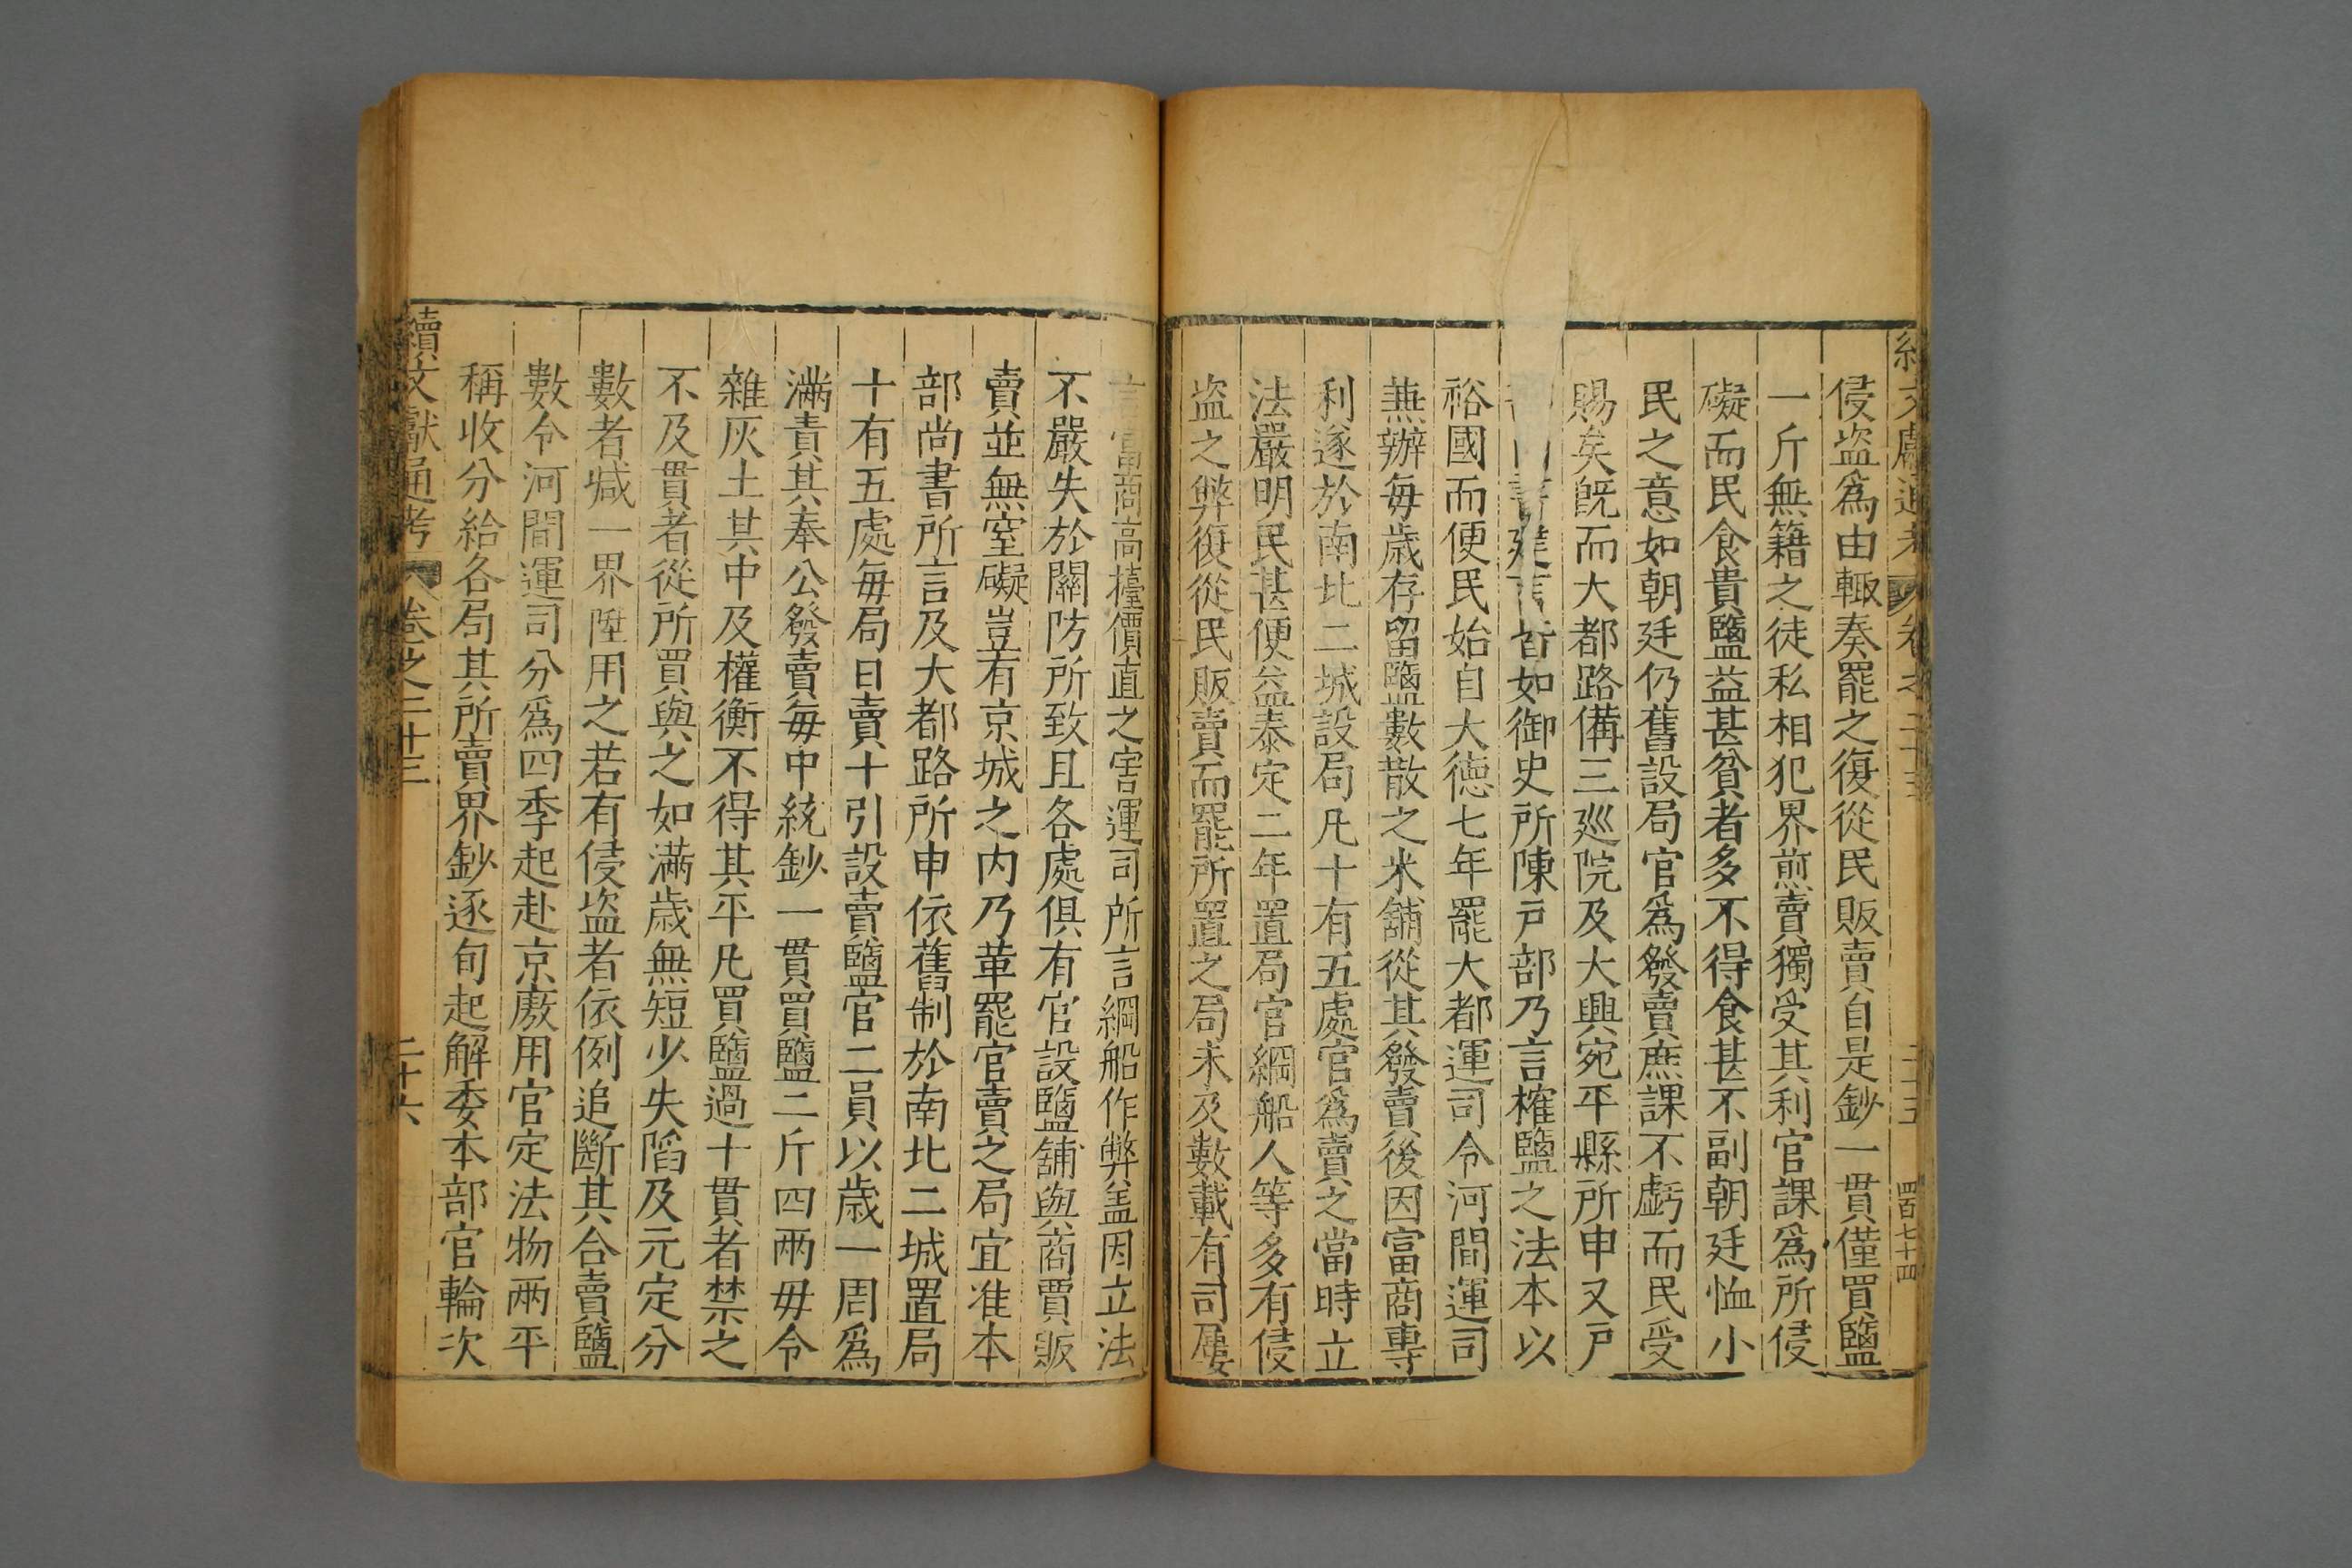 侵盜爲由輙奏罷之復從民販賣自是鈔一貫僅買鹽
一斤無籍之徒私相犯界煎賣獨受其利官課爲所侵
礙而民食貴鹽益甚貧者多不得食甚不副朝廷恤小
民之意如朝廷仍舊設局官爲發賣庶課不虧而民受
賜矣旣而大都路備三巡院及大興宛平縣所申又戶
書建言皆如御史所陳戶部乃言榷鹽之法本以
裕國而便民始自大德七年罷大都運司令河間運司
兼辦每歲存留鹽數散之米舖從其發賣後因富商專
利遂於南北二城設局凡十有五處官爲賣之當時立
法嚴明民甚便益泰定二年置局官綱船人等多有侵
盜之弊復從民販賣而罷所置之局未及數載有司屢
言富商高擡價直之害運司所言綱船作弊盖因立法
不嚴失於關防所致且各處俱有官設鹽舖與商賈販
賣並無窒礙豈有京城之內乃革罷官賣之局宜准本
部尚書所言及大都路所申依舊制於南北二城置局
十有五處每局日賣十引設賣鹽官二員以歲一周爲
滿責其奉公發賣每中統鈔一貫買鹽二斤四兩毋令
雜灰土其中及權衡不得其平凡買鹽過十貫者禁之
不及貫者從所買與之如滿歲無短少失陷及元定分
數者减一界陞用之若有侵盜者依例追斷其合賣鹽
數令河間運司分爲四季起赴京廒用官定法物兩平
稱收分給各局其所賣界鈔逐旬起解委本部官輪次
續文獻通考 卷之二十三 二十六
續文獻通考 卷之二十三 二十五 四百七十四